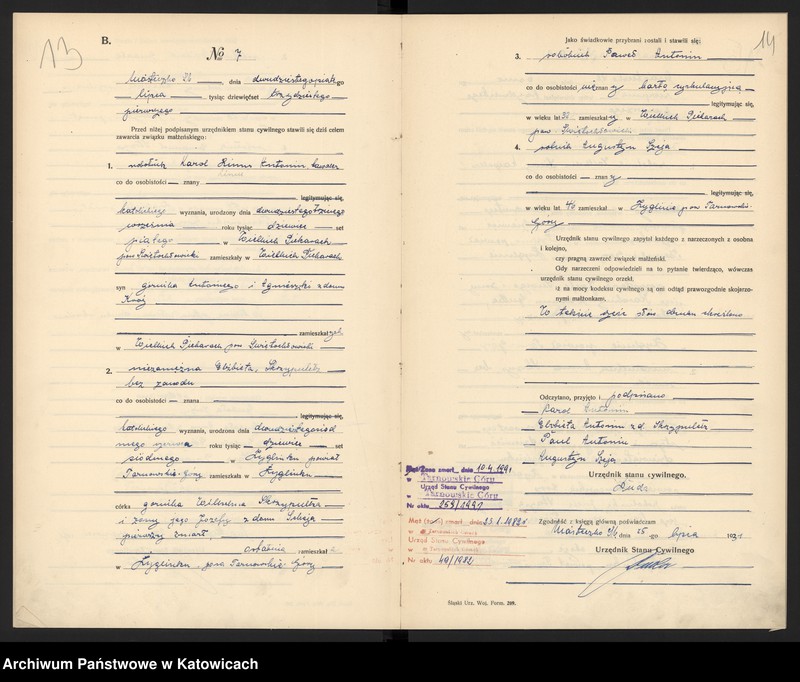 13
B.
№ 7
dnia dwudziestego go
lipca tysiąc dziewięćset trzydziestego
pierwszego
Przed niżej podpisanym urzędnikiem stanu cywilnego stawili się dziś celem
zawarcia związku małżeńskiego:
1. Karol Antonin kawaler
co do osobistości — znany
legitymując się,
katolickiego wyznania, urodzony dnia dwudziestego
września roku tysiąc dziewięć set
piątego w Wielkich Piekarach
pow. Świętochłowicki zamieszkały w Wielkich Piekarach
syn górnika Antoniego i Agnieszki z domu
zamieszkałych
w Wielkich Piekarach pow. Świętochłowicki
2. niezamężna Elżbieta Skrzypulec
bez zawodu
co do osobistości — znana
legitymując się,
katolickiego wyznania, urodzona dnia dwudziestego
czerwca roku tysiąc dziewięć set
siódmego w Żyglinku powiat
Tarnowskie-Góry zamieszkała w Żyglinku
córka górnika Wilhelma Skrzypulca
i żony jego Józefy z domu
pierwszy zmarł,
ostatnia zamieszkała
w Żyglinku pow. Tarnowskie-Góry
14
Jako świadkowie przybrani zostali i stawili się:
3. robotnik Paweł Antonin
co do osobistości kartą cyrkulacyjną
legitymując się,
w wieku lat 32 zamieszkały w Wielkich Piekarach
pow. Świętochłowicki
4. Augustyn Szeja
co do osobistości — znany
legitymując się,
w wieku lat zamieszkał w Żyglinie pow. Tarnowskie-
Góry
Urzędnik stanu cywilnego zapytał każdego z narzeczonych z osobna
i kolejno,
czy pragną zawrzeć związek małżeński.
Ody narzeczeni odpowiedzieli na to pytanie twierdząco, wówczas
urzędnik stanu cywilnego orzekł,
iż na mocy kodeksu cywilnego są oni odtąd prawozgodnie skojarzo-
nymi małżonkami.
W tekście słow skreślono
Odczytano, przyjęto i podpisano
Karol Antonin
Elżbieta Antonin z d. Skrzypulec
Paul Antonin
Augustyn Szeja
Urzędnik stanu cywilnego.
Duda
Zgodność z księgą główną poświadczam
Miasteczko dnia 25 go lipca 1931
Urzędnik Stanu Cywilnego
Duda
zmarł dnia 10.4.1991
w Tarnowskie Góry
Urząd Stanu Cywilnego
w Tarnowskie Góry
Nr aktu 259/1991
zmarł dnia 23.1.1982
w
Urząd Stanu Cywilnego
w
Nr aktu 49/1982
Śląski Urz. Woj. Form. 269.
Archiwum Państwowe w Katowicach